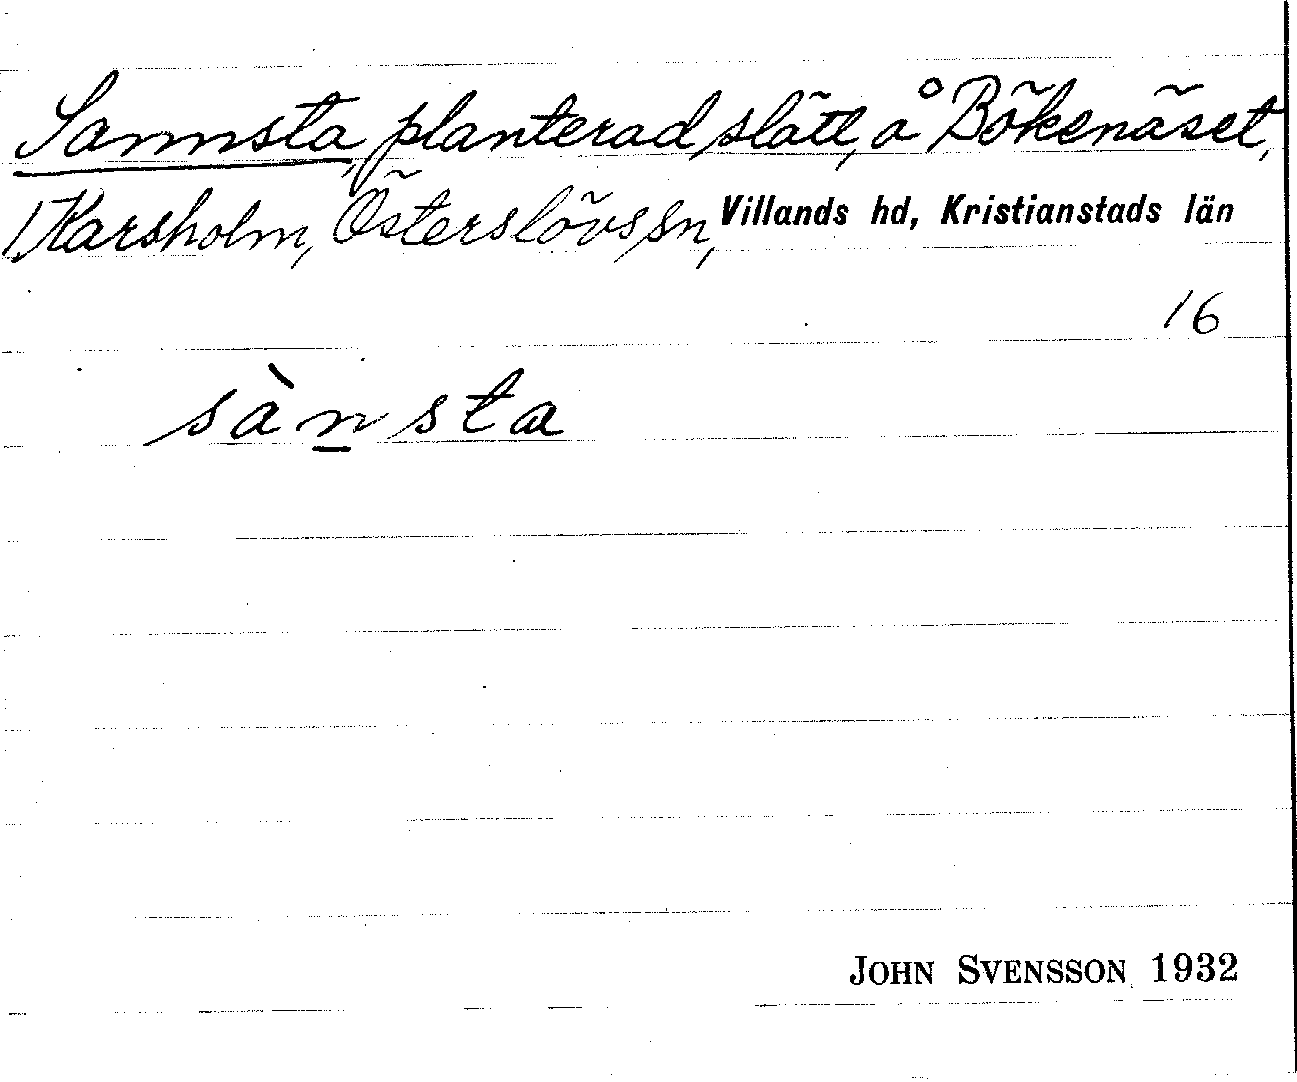 Sannsta, planterad slätt, å Bökenäset,
Karsholm, Österslövs sn, Villands hd, Kristianstads län
16
sànsta
JOHN SVENSSON 1932